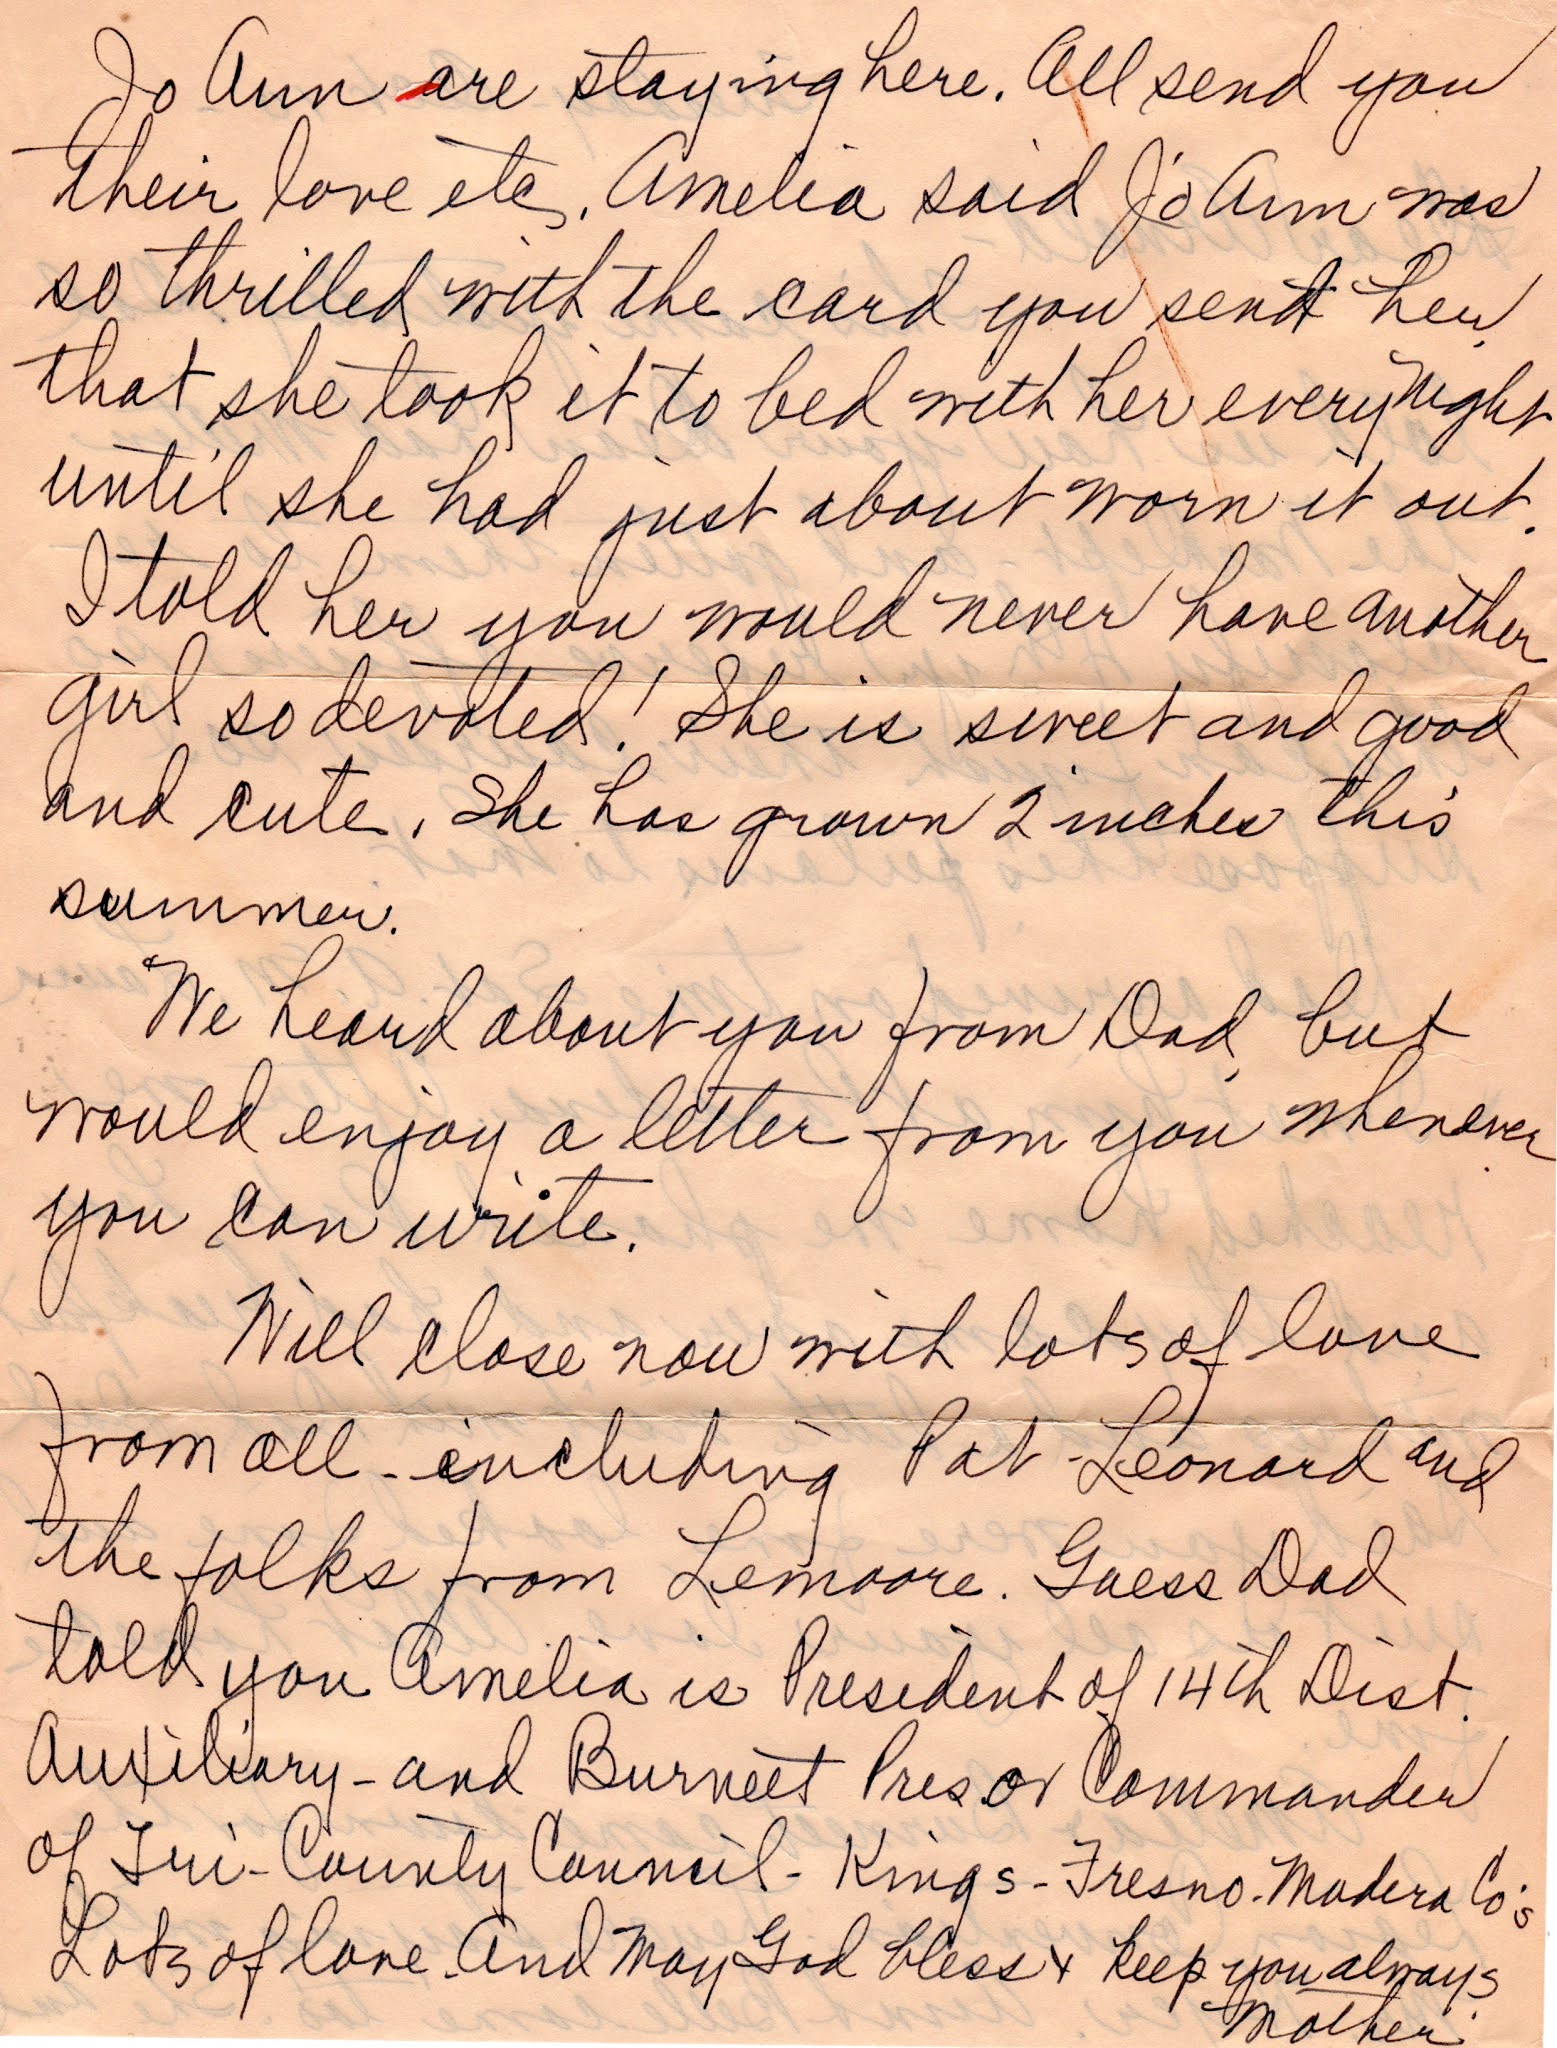 Jo Ann are staying here. All send you
their love etc. Amelia said Jo Ann was
so thrilled with the card you sent her
that she took it to bed with her every night
until she had just about worn it out.
I told her you would never have another
girl so devoted! She is sweet and good
and cute. She has grown 2 inches this
summer.
We heard about you from Dad, but
would enjoy a letter from you whenever
you can write.
Will close now with lots of love
from all - including Pat - Leonard and
the folks from Lemoore. Guess Dad
told you Amelia is President of 14th Dist.
Auxiliary - and Burneet Pres or Commander
of Tri-County Council - Kings - Fresno - Madera Co's
Lots of love. And May God bless & keep you always
Mother.